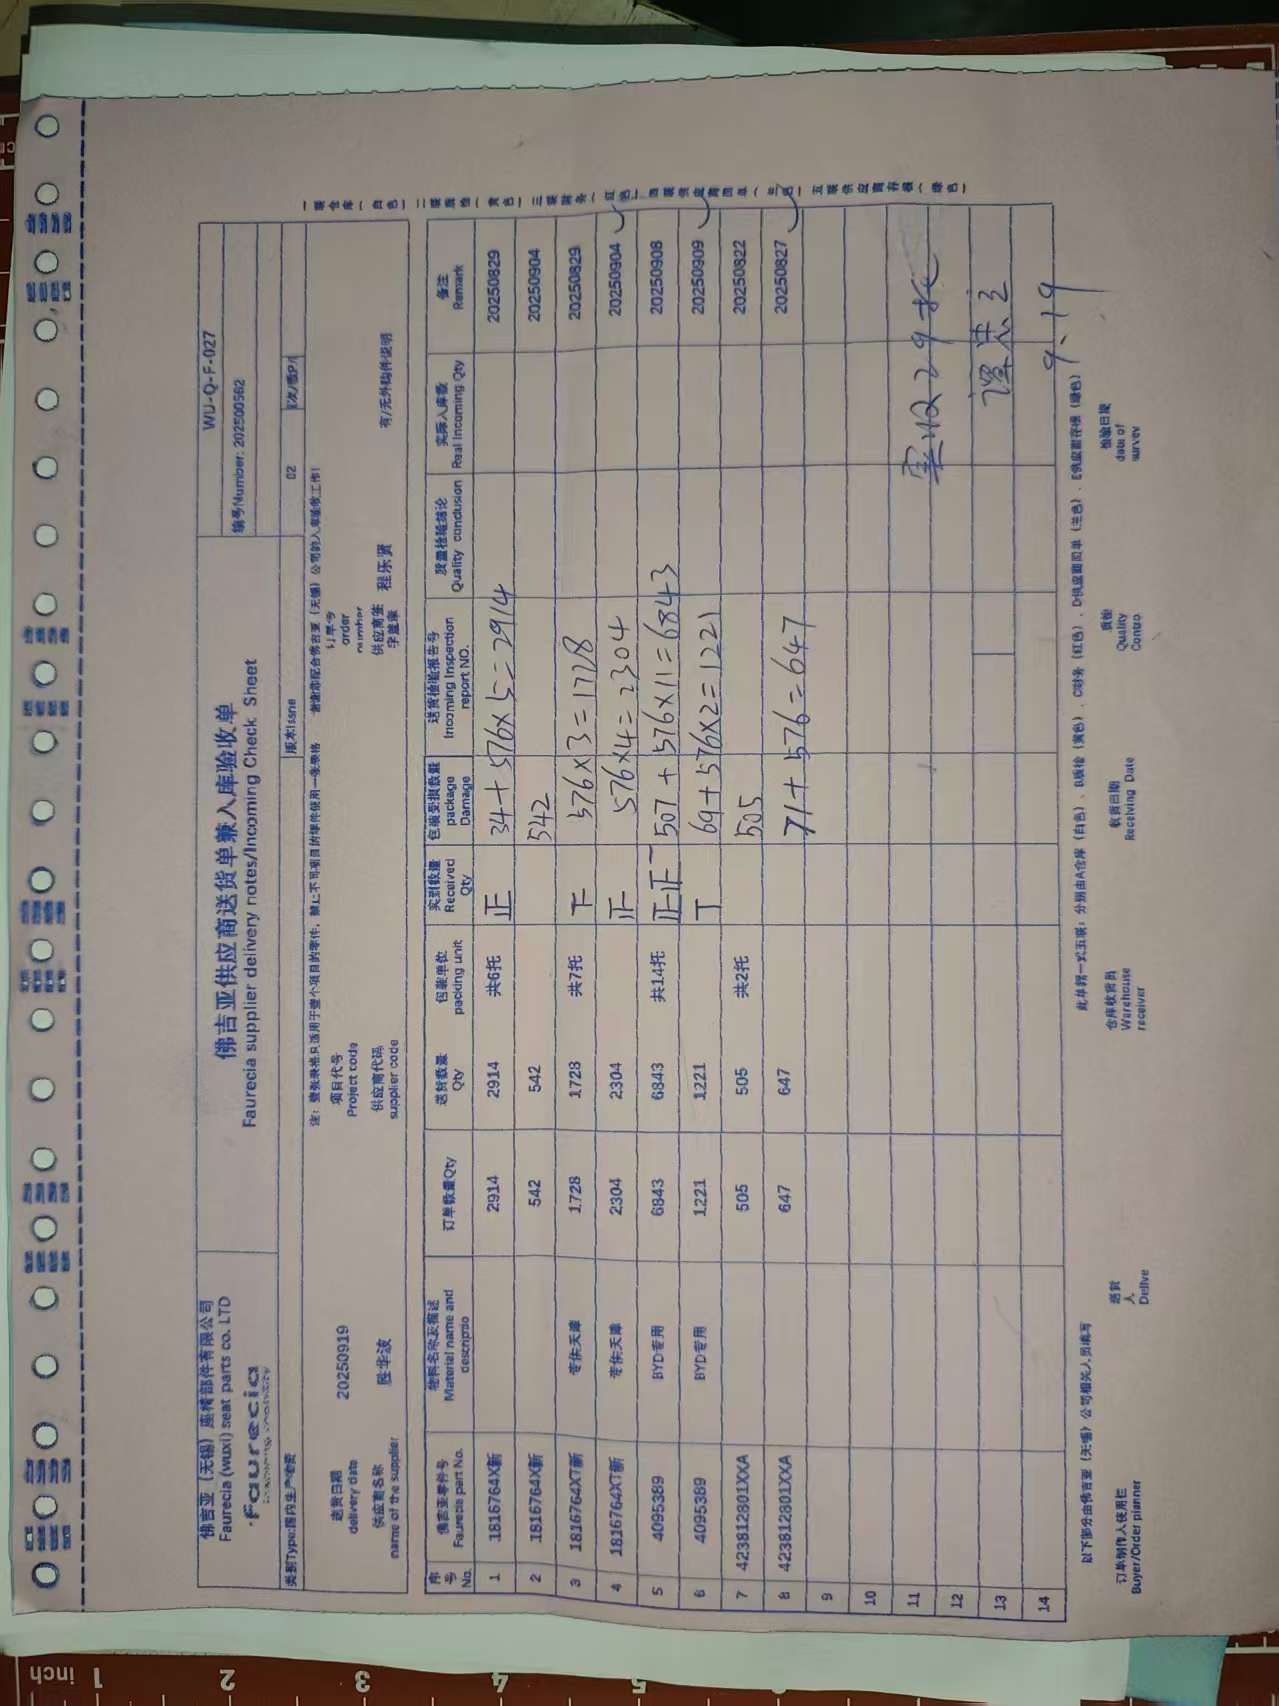 佛吉亚（无锡）座椅部件有限公司
Faurecia (wuxi) seat parts co. LTD
faurecia
佛吉亚供应商送货单兼入库验收单
Faurecia supplier delivery notes/Incoming Check Sheet
WU-Q-F-027
编号Number: 202500562
类别Type:国内生产物资
版本Issne
02
注：整张表格只适用于整个项目的零件，禁止不同项目的零件使用一张表格 谢谢您配合佛吉亚（无锡）公司的入库验收工作!
送货日期 20250919 项目代号 订单号
delivery date Project code order number
供应商名称 供应商代码 供应商签字盖章 程乐贤 有/无外购件说明
name of the supplier supplier code
序号 佛吉亚零件号 物料名称及描述 订单数量Qty 送货数量 包装单位 实到数量 包装受损数量 送货检验报告号 质量检验结论 实际入库数 备注
No. Faurecia part No. Material name and descriptio Qty packing unit Received Qty package Damage Incoming Inspection report NO. Quality conclusion Real Incoming Qty Remark
1 1816764X新 2914 2914 共6托 正 34+576×5=2914 20250829
2 1816764X新 542 542 542 20250904
3 1816764XT新 1728 1728 共7托 下 576×3=1728 20250829
4 1816764XT新 2304 2304 576×4=2304 20250904
5 4095389 BYD专用 6843 6843 共14托 正正一 507+576×11=6843 20250908
6 4095389 BYD专用 1221 1221 丅 69+576×2=1221 20250909
7 423812801XXA 505 505 共2托 505 20250822
8 423812801XXA 647 647 71+576=647 20250827
9
10
11
12
13
14
实收29托
9.19
此单据一式五联：分别由A仓库（白色）、B质检（黄色）、C财务（红色）、D供应商回单（兰色）、E供应商存根（绿色）
以下部分由佛吉亚（无锡）公司相关人员填写
订单制作人使用栏 送货人 仓库收货员 收货日期 质检 检验日期
Buyer/Order planner Delive Warehouse receiver Receiving Date Quality Contro date of survey
一联仓库（白色） 二联质检（黄色） 三联财务（红色） 四联供应商回单（兰色） 五联供应商存根（绿色）
inch 1 2 3 4 5